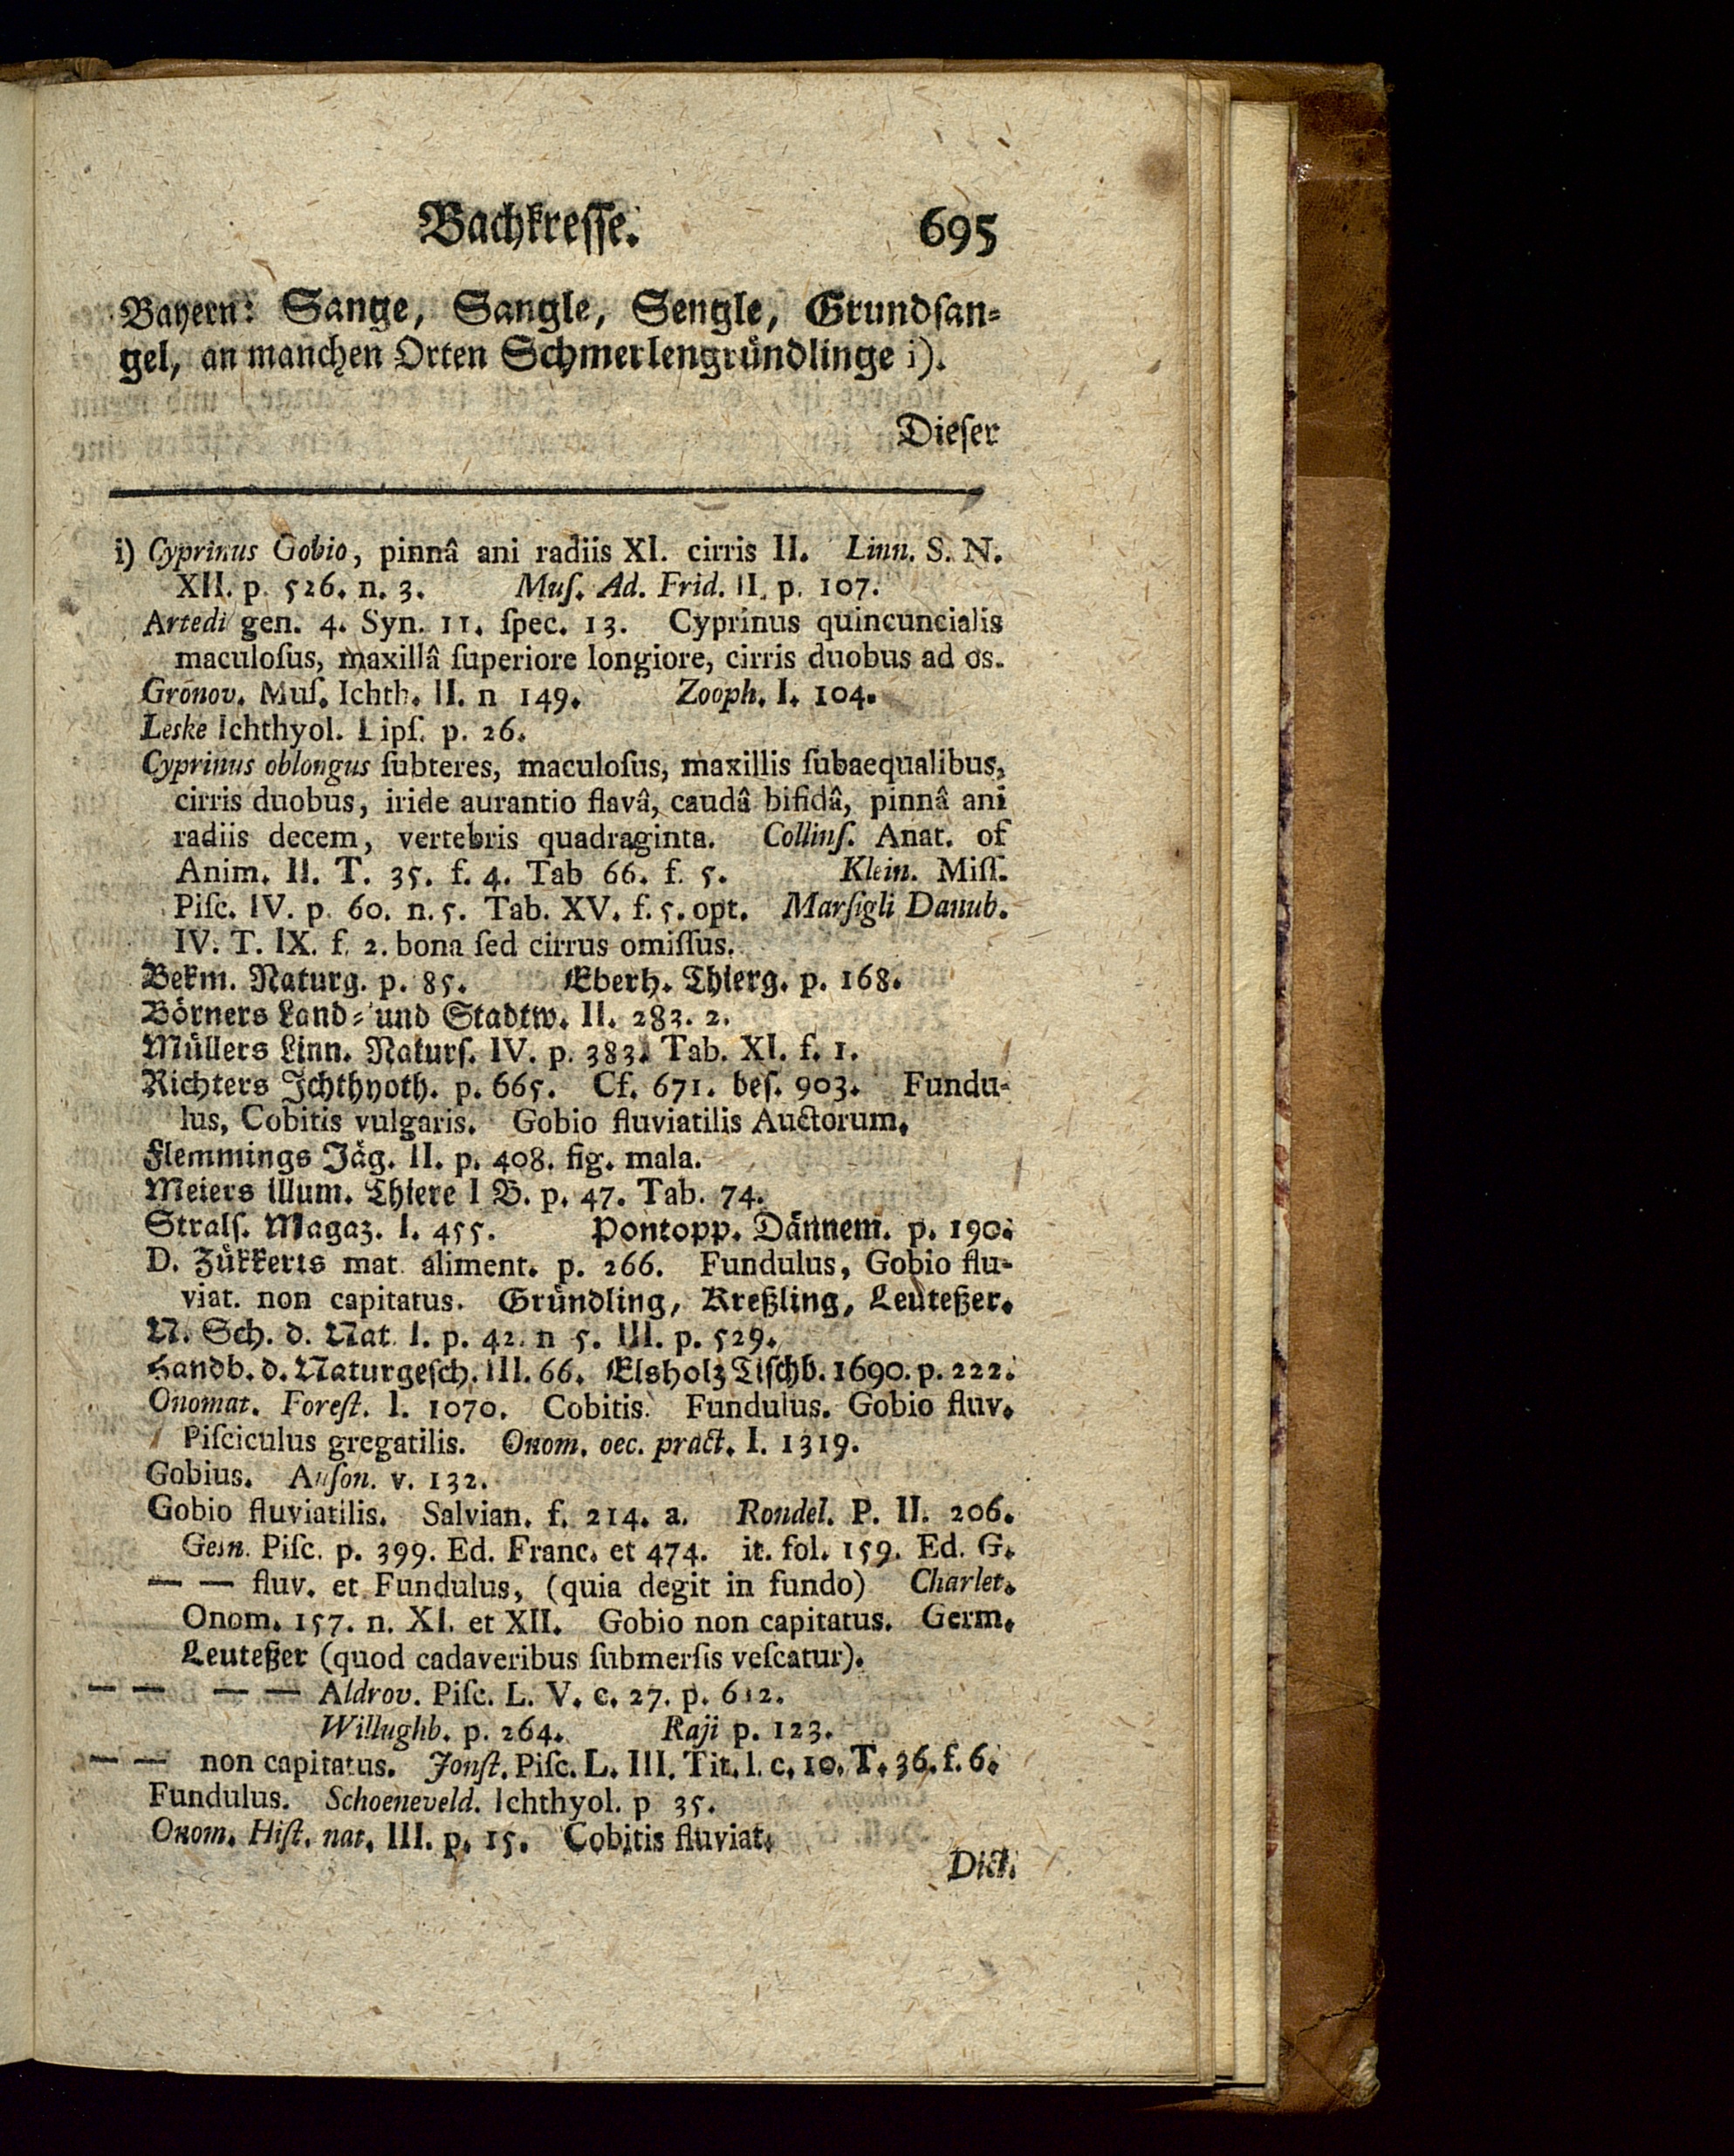 Bachkresse. 695
Bayern: Sange, Sangle, Sengle, Grundſan-
gel, an manchen Orten Schmerlengründlinge i).
Dieſer
i) Cyprinus Gobio, pinnâ ani radiis XI. cirris II. Linn. S. N.
XII. p. 526. n. 3. Muſ. Ad. Frid. II. p. 107.
Artedi gen. 4. Syn. 11. ſpec. 13. Cyprinus quincuncialis
maculoſus, maxillâ ſuperiore longiore, cirris duobus ad os.
Gronov. Muſ. Ichth. II. n 149. Zooph. I. 104.
Leske Ichthyol. Lipſ. p. 26.
Cyprinus oblongus ſubteres, maculoſus, maxillis ſubaequalibus,
cirris duobus, iride aurantio flavâ, caudâ bifidâ, pinnâ ani
radiis decem, vertebris quadraginta. Collinſ. Anat. of
Anim. II. T. 35. f. 4. Tab 66. f. 5. Klein. Miſſ.
Piſc. IV. p. 60. n. 5. Tab. XV. f. 5. opt. Marſigli Danub.
IV. T. IX. f. 2. bona ſed cirrus omiſſus.
Bekm. Naturg. p. 85. Eberh. Thierg. p. 168.
Börners Land- und Stadtw. II. 283. 2.
Müllers Linn. Naturſ. IV. p. 383. Tab. XI. f. 1.
Richters Ichthyoth. p. 665. Cf. 671. beſ. 903. Fundu-
lus, Cobitis vulgaris. Gobio fluviatilis Auctorum.
Flemmings Jäg. II. p. 408. fig. mala.
Meiers illum. Thiere I B. p. 47. Tab. 74.
Stralſ. Magaz. I. 455. Pontopp. Dännem. p. 190.
D. Zükkerts mat. aliment. p. 266. Fundulus, Gobio flu-
viat. non capitatus. Gründling, Kreßling, Leuteßer.
N. Sch. d. Nat. I. p. 42. n 5. III. p. 529.
Handb. d. Naturgeſch. III. 66. Elsholz Tiſchb. 1690. p. 222.
Onomat. Foreſt. I. 1070. Cobitis. Fundulus. Gobio fluv.
Piſciculus gregatilis. Onom. oec. pract. I. 1319.
Gobius. Auſon. v. 132.
Gobio fluviatilis. Salvian. f. 214. a. Rondel. P. II. 206.
Geſn. Piſc. p. 399. Ed. Franc. et 474. it. fol. 159. Ed. G.
— — fluv. et Fundulus, (quia degit in fundo) Charlet.
Onom. 157. n. XI. et XII. Gobio non capitatus. Germ.
Leuteßer (quod cadaveribus ſubmerſis veſcatur).
— — — — Aldrov. Piſc. L. V. c. 27. p. 612.
Willughb. p. 264. Raji p. 123.
— — non capitatus. Jonſt. Piſc. L. III. Tit. I. c. 10. T. 36. f. 6.
Fundulus. Schoeneveld. Ichthyol. p 35.
Onom. Hiſt. nat. III. p. 15. Cobitis fluviat.
Dict.